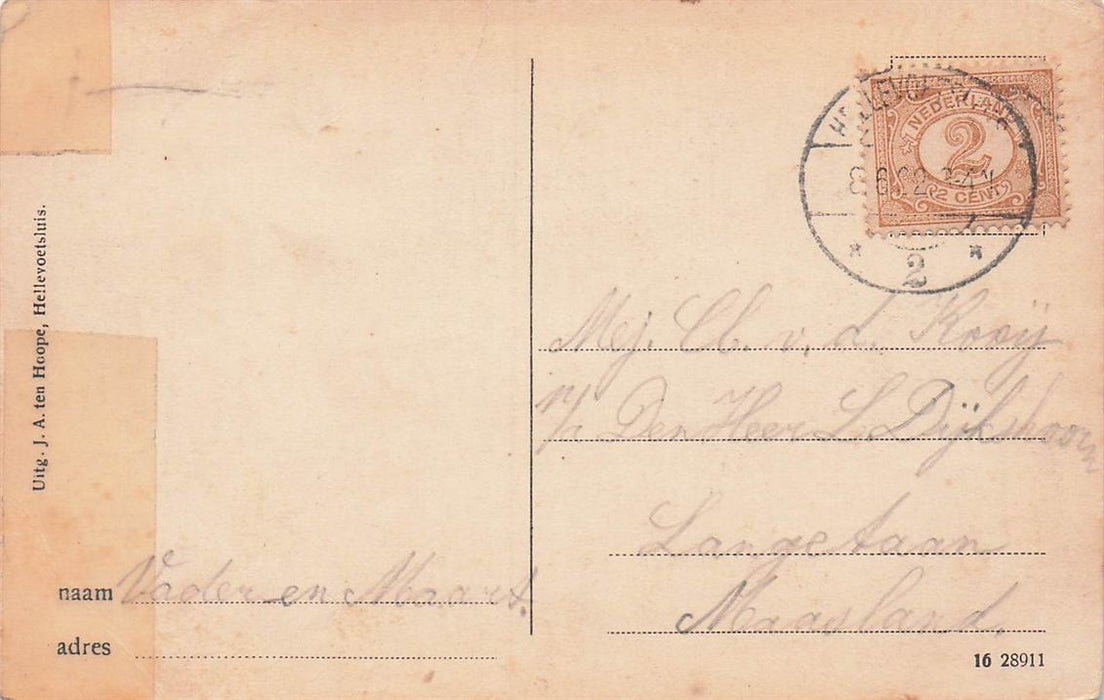 Uitg. J. A. ten Hoope, Hellevoetsluis.
naam Vader en Maart.
adres
NEDERLAND
2
2 CENT
2
Mej. Cl. v. d. Kooÿ
Den Heer L. Dÿkshoorn
Langetaan
Maasland.
16 28911